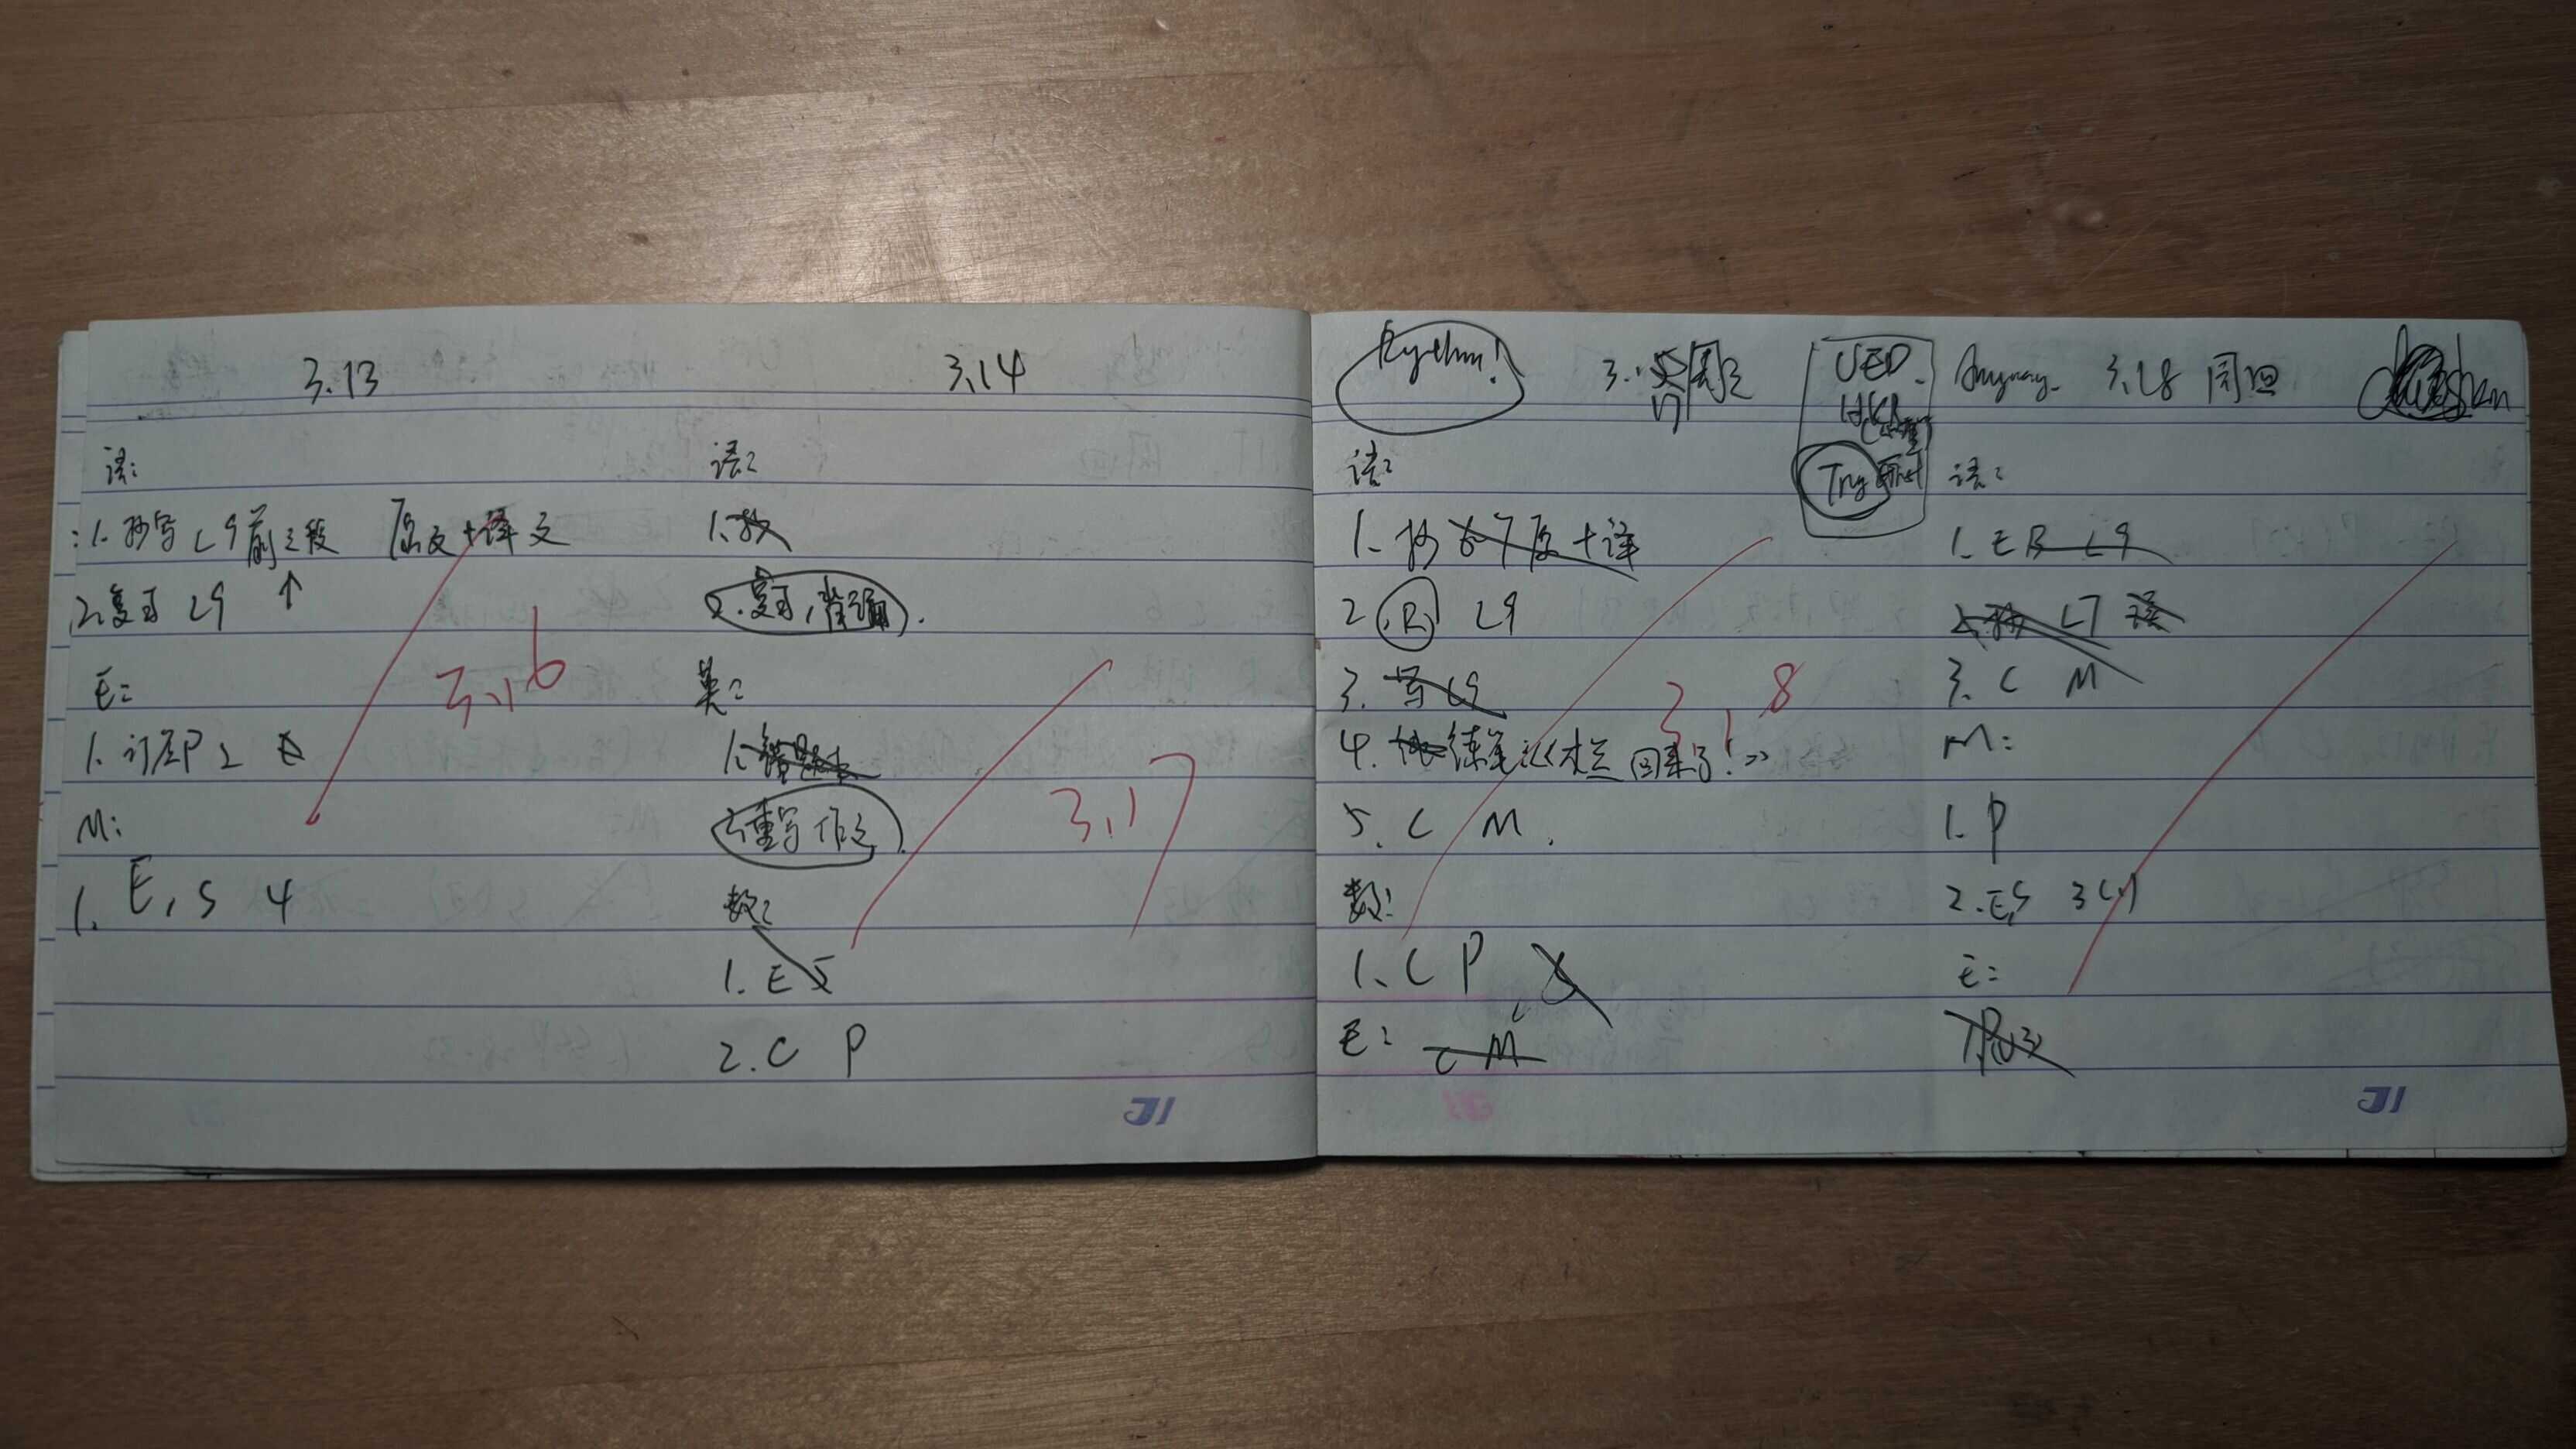 3.13
语:
1. 抄写 L9前三段 原文+译文
2.复习 L9 ↑
E:
1. 订正P2
M:
1. E, S 4
3.16
3.14
语:
1.抄
2.复习,背诵.
英:
1.错题本
2.重写作文.
数:
1. E 5
2. C P
3.17
Rythm!
3.
17 周三
语:
1. 抄 7原+译
2. R L9
3. 写L9
4. 练笔 回来了!>>
5. C M.
数:
1. C P
E: C M
3,18
UED.
Try
Anyway. 3.18 周四
语:
1. E B L9
2.抄 L7 译
3. C M
M:
1. P
2. E,S 3(4)
E: